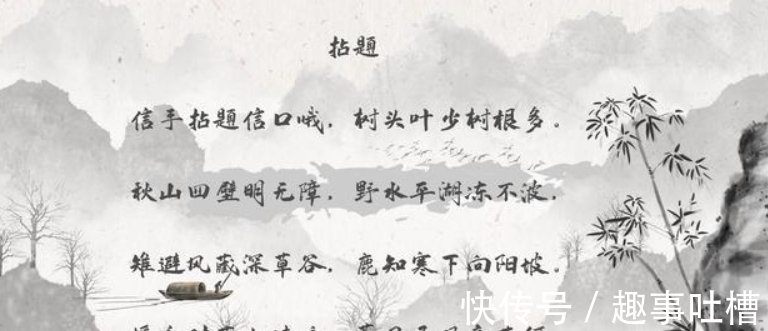 拈题
信手拈题信口哦，树头叶少树根多。
秋山四壁明无障，野水平湖冻不波，
雉避风藏深草谷，鹿知寒下向阳坡。
快传号 / 趣事吐槽